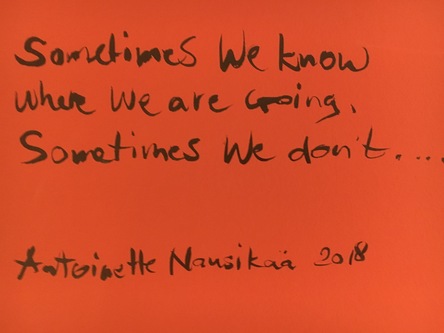 Sometimes We know
where We are Going,
Sometimes We don't....
Antoinette Nausikaä 2018